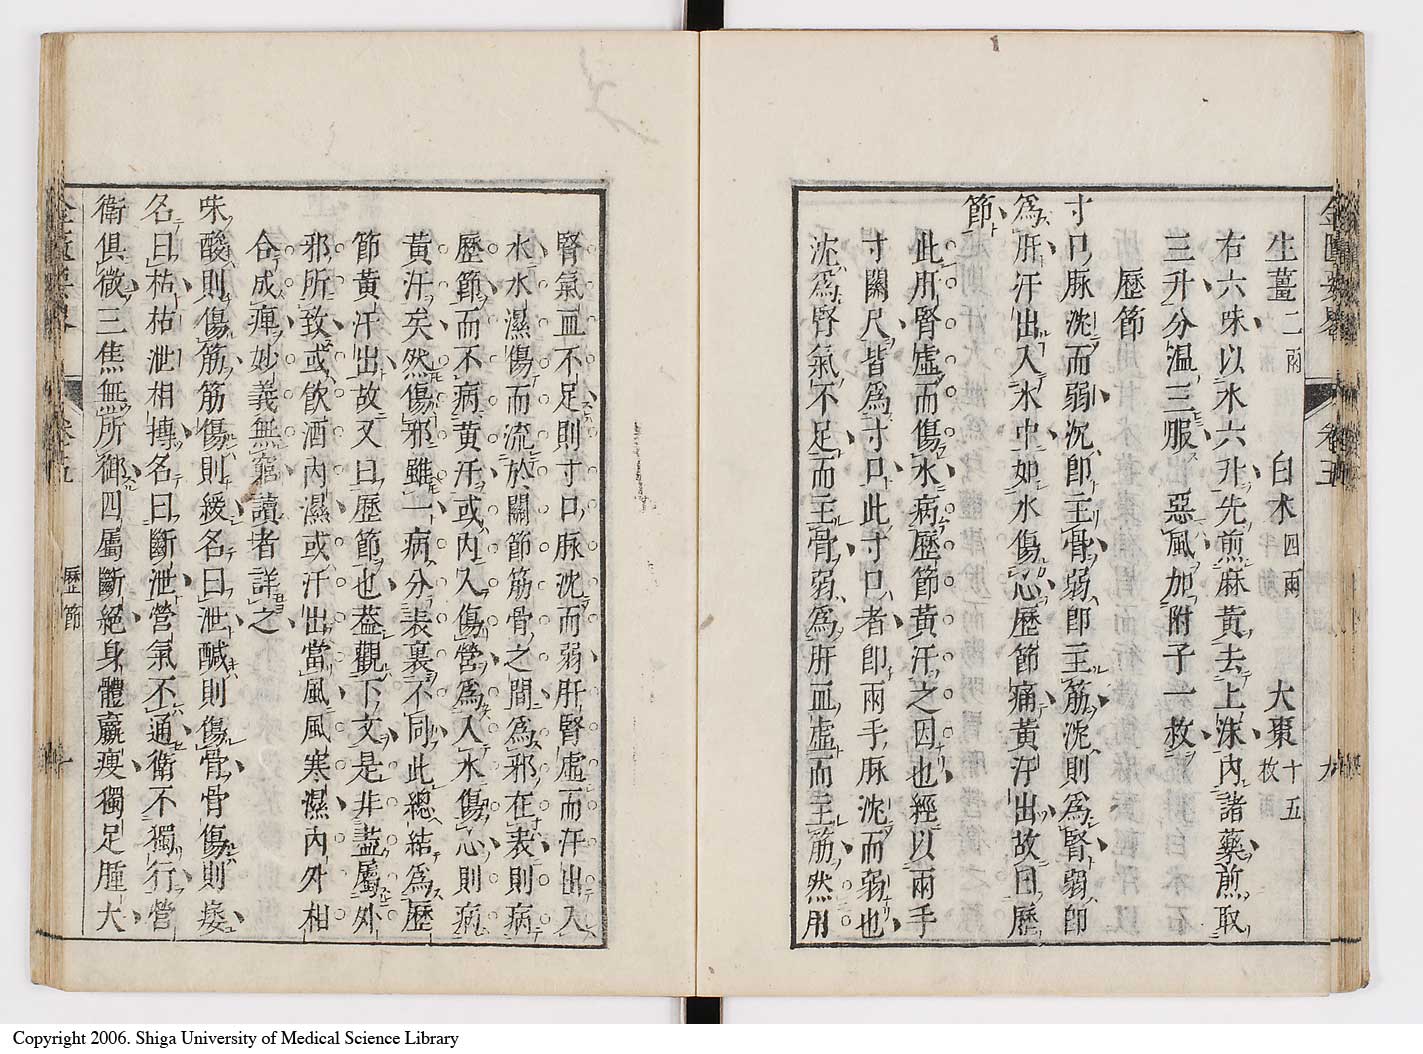 生薑二兩 白朮四兩 大棗十五枚
右六味以水六升先煎麻黃去上沫內諸藥煎取
三升分溫三服 惡風加附子一枚
歷節
寸口脉沈而弱沉即主骨弱即主筋沈則為腎弱即
為肝汗出入水中如水傷心歷節痛黃汗出故曰歷
節
此肝腎虛而傷水病歷節黃汗之因也經以兩手
寸關尺皆為寸口此寸口者即兩手脉沈而弱也
沈為腎氣不足而主骨弱為肝血虛而主筋然用
腎氣血不足則寸口脉沈而弱肝腎虛而汗出入
水水濕傷而流於關節筋骨之間為邪在表則病
歷節而不病黃汗或內入傷營為入水傷心則病
黃汗矣然傷邪雖一病分表裏不同此總結為歷
節黃汗出故又曰歷節也蓋觀下文是非盡屬外
邪所致或飲酒內濕或汗出當風風寒濕內外相
合成痺妙義無窮讀者詳之
味酸則傷筋筋傷則緩名曰泄鹹則傷骨骨傷則痿
名曰枯枯泄相搏名曰斷泄營氣不通衛不獨行營
衛俱微三焦無所御四屬斷絕身體羸瘦獨足腫大
歷節
卷五
九
Copyright 2006. Shiga University of Medical Science Library